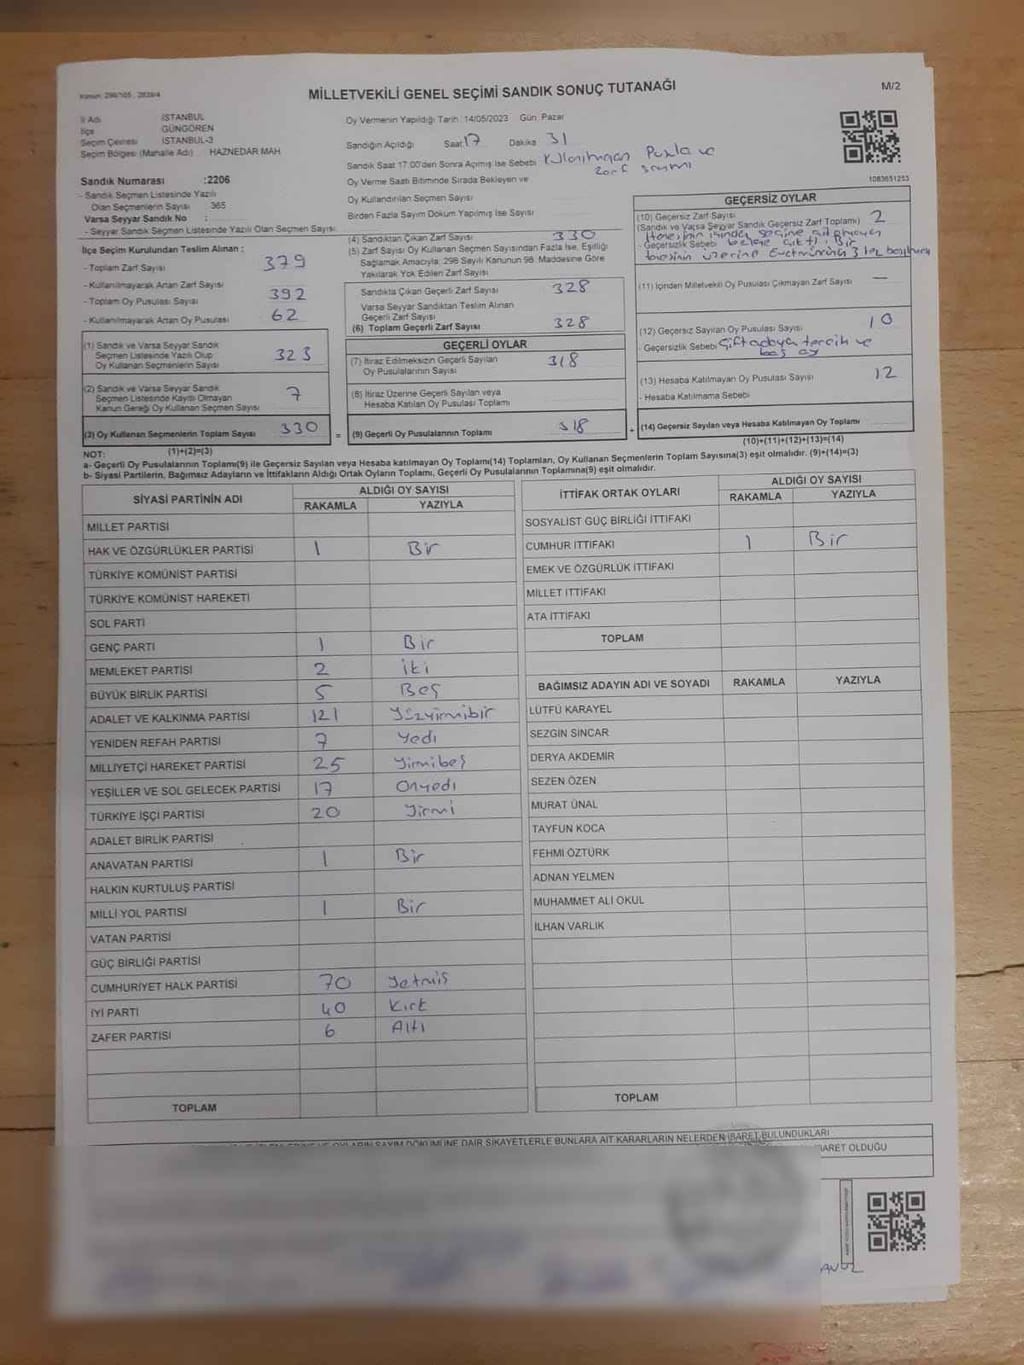 Kanun: 298/105, 2839/4
M/2
MİLLETVEKİLİ GENEL SEÇİMİ SANDIK SONUÇ TUTANAĞI
İl Adı İSTANBUL
İlçe GÜNGÖREN
Seçim Çevresi İSTANBUL-3
Seçim Bölgesi (Mahalle Adı) HAZNEDAR MAH
Sandık Numarası :2206
- Sandık Seçmen Listesinde Yazılı
Olan Seçmenlerin Sayısı 365
Varsa Seyyar Sandık No :
- Seyyar Sandık Seçmen Listesinde Yazılı Olan Seçmen Sayısı
Oy Vermenin Yapıldığı Tarih :14/05/2023 Gün: Pazar
Sandığın Açıldığı Saat 17 Dakika 31
Sandık Saat 17:00'den Sonra Açılmış İse Sebebi Pusla ve
zarf sayımı
Oy Verme Saati Bitiminde Sırada Bekleyen ve
Oy Kullandırılan Seçmen Sayısı
Birden Fazla Sayım Döküm Yapılmış İse Sayısı
1083651253
İlçe Seçim Kurulundan Teslim Alınan :
- Toplam Zarf Sayısı 379
- Kullanılmayarak Artan Zarf Sayısı
- Toplam Oy Pusulası Sayısı 392
- Kullanılmayarak Artan Oy Pusulası 62
(1) Sandık ve Varsa Seyyar Sandık
Seçmen Listesinde Yazılı Olup
Oy Kullanan Seçmenlerin Sayısı 323
(2) Sandık ve Varsa Seyyar Sandık
Seçmen Listesinde Kayıtlı Olmayan
Kanun Gereği Oy Kullanan Seçmen Sayısı 7
(3) Oy Kullanan Seçmenlerin Toplam Sayısı 330
(1)+(2)=(3)
(4) Sandıktan Çıkan Zarf Sayısı 330
(5) Zarf Sayısı Oy Kullanan Seçmen Sayısından Fazla İse, Eşitliği
Sağlamak Amacıyla, 298 Sayılı Kanunun 98. Maddesine Göre
Yakılarak Yok Edilen Zarf Sayısı
Sandıkta Çıkan Geçerli Zarf Sayısı 328
Varsa Seyyar Sandıktan Teslim Alınan
Geçerli Zarf Sayısı
(6) Toplam Geçerli Zarf Sayısı 328
GEÇERLİ OYLAR
(7) İtiraz Edilmeksizin Geçerli Sayılan
Oy Pusulalarının Sayısı 318
(8) İtiraz Üzerine Geçerli Sayılan veya
Hesaba Katılan Oy Pusulası Toplamı
= (9) Geçerli Oy Pusulalarının Toplamı 318
GEÇERSİZ OYLAR
(10) Geçersiz Zarf Sayısı
(Sandık ve Varsa Seyyar Sandık Geçersiz Zarf Toplamı) 2
- Geçersizlik Sebebi
(11) İçinden Milletvekili Oy Pusulası Çıkmayan Zarf Sayısı —
(12) Geçersiz Sayılan Oy Pusulası Sayısı 10
- Geçersizlik Sebebi Çift adaya tercih ve
boş oy
(13) Hesaba Katılmayan Oy Pusulası Sayısı 12
- Hesaba Katılmama Sebebi
+ (14) Geçersiz Sayılan veya Hesaba Katılmayan Oy Toplamı
(10)+(11)+(12)+(13)=(14)
NOT:
a- Geçerli Oy Pusulalarının Toplamı(9) ile Geçersiz Sayılan veya Hesaba katılmayan Oy Toplamı(14) Toplamları, Oy Kullanan Seçmenlerin Toplam Sayısına(3) eşit olmalıdır. (9)+(14)=(3)
b- Siyasi Partilerin, Bağımsız Adayların ve İttifakların Aldığı Ortak Oyların Toplamı, Geçerli Oy Pusulalarının Toplamına(9) eşit olmalıdır.
SİYASİ PARTİNİN ADI ALDIĞI OY SAYISI
RAKAMLA YAZIYLA
MİLLET PARTİSİ
HAK VE ÖZGÜRLÜKLER PARTİSİ 1 Bir
TÜRKİYE KOMÜNİST PARTİSİ
TÜRKİYE KOMÜNİST HAREKETİ
SOL PARTİ
GENÇ PARTİ 1 Bir
MEMLEKET PARTİSİ 2 iki
BÜYÜK BİRLİK PARTİSİ 5 Beş
ADALET VE KALKINMA PARTİSİ 121 Yüzyirmibir
YENİDEN REFAH PARTİSİ 7 Yedi
MİLLİYETÇİ HAREKET PARTİSİ 25 Yirmibeş
YEŞİLLER VE SOL GELECEK PARTİSİ 17 Onyedi
TÜRKİYE İŞÇİ PARTİSİ 20 Yirmi
ADALET BİRLİK PARTİSİ
ANAVATAN PARTİSİ 1 Bir
HALKIN KURTULUŞ PARTİSİ
MİLLİ YOL PARTİSİ 1 Bir
VATAN PARTİSİ
GÜÇ BİRLİĞİ PARTİSİ
CUMHURİYET HALK PARTİSİ 70 Yetmiş
İYİ PARTİ 40 Kırk
ZAFER PARTİSİ 6 Altı
TOPLAM
İTTİFAK ORTAK OYLARI ALDIĞI OY SAYISI
RAKAMLA YAZIYLA
SOSYALİST GÜÇ BİRLİĞİ İTTİFAKI
CUMHUR İTTİFAKI 1 Bir
EMEK VE ÖZGÜRLÜK İTTİFAKI
MİLLET İTTİFAKI
ATA İTTİFAKI
TOPLAM
BAĞIMSIZ ADAYIN ADI VE SOYADI RAKAMLA YAZIYLA
LÜTFÜ KARAYEL
SEZGİN SİNCAR
DERYA AKDEMİR
SEZEN ÖZEN
MURAT ÜNAL
TAYFUN KOCA
FEHMİ ÖZTÜRK
ADNAN YELMEN
MUHAMMET ALİ OKUL
İLHAN VARLIK
TOPLAM
OYLARIN SAYIM DÖKÜMÜNE DAİR ŞİKAYETLERLE BUNLARA AİT KARARLARIN NELERDEN İBARET BULUNDUKLARI
İBARET OLDUĞU